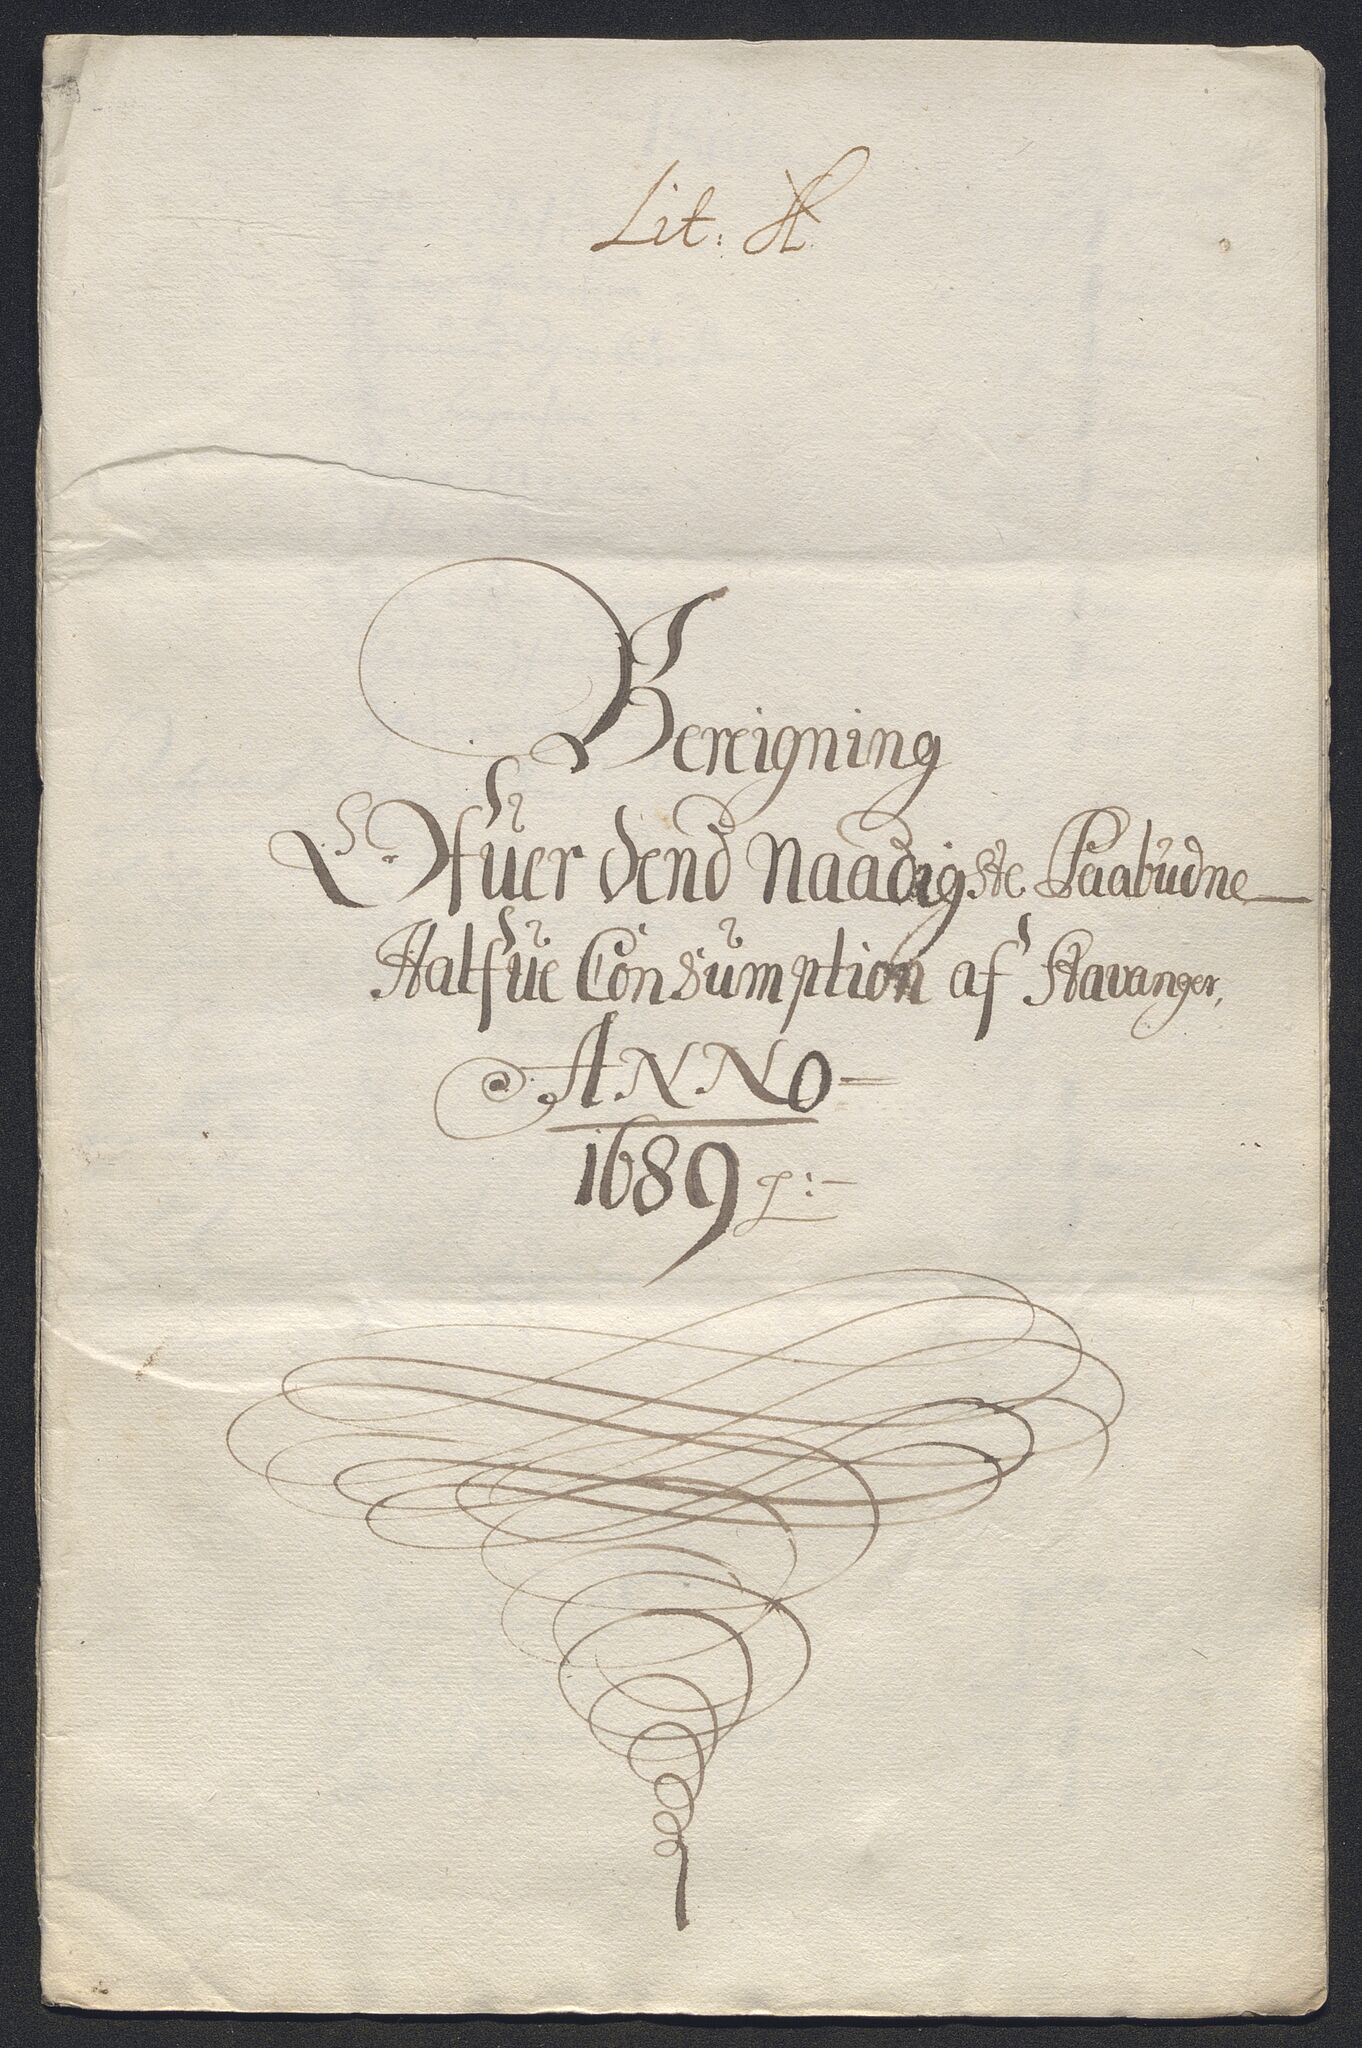 Lit: H
Bereigning
Offuer dend Naadigste Paabudne
Halfue Consumption af Stavanger,
ANNO
1689